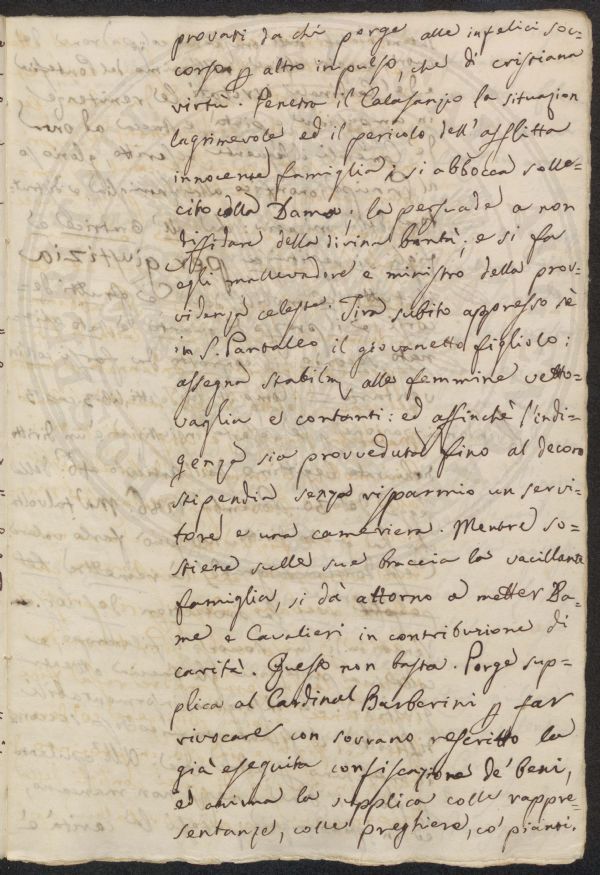 provati da chi porge alle infelici soc-
corso p altro impulso, che di cristiana
virtù. Penetra il Calasanzio la situazion
lagrimevole ed il pericolo dell'afflitta
innocente famiglia; si abbocca solle-
cito colla Dama; la persuade a non
diffidare della divina bontà; e si fa
egli mallevadore e ministro della prov-
videnza celeste. Tira subito appresso sè
in S. Pantaleo il giovanetto figliolo:
assegna stabilm alle femmine vetto-
vaglia e contanti: ed affinchè l'indi-
genza sia provveduta fino al decoro
stipendia senza risparmio un servi-
tore e una cameriera. Mentre so-
stiene sulle sue braccia la vacillante
famiglia, si dà attorno a metter Da-
me e Cavalieri in contribuzione di
carità. Questo non basta. Porge sup-
plica al Cardinal Barberini p far
rivocare con sovrano rescritto la
già eseguita confiscazione de' beni,
ed anima la supplica colle rappre-
sentanze, colle preghiere, co' pianti.